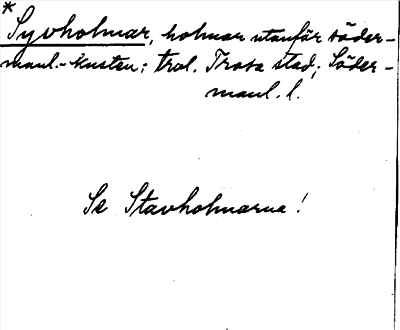 * Syvholmar, holmar utanför söder-
manl.-kusten; trol. Trosa stad; Söder-
manl. l.
Se Stavholmarna!